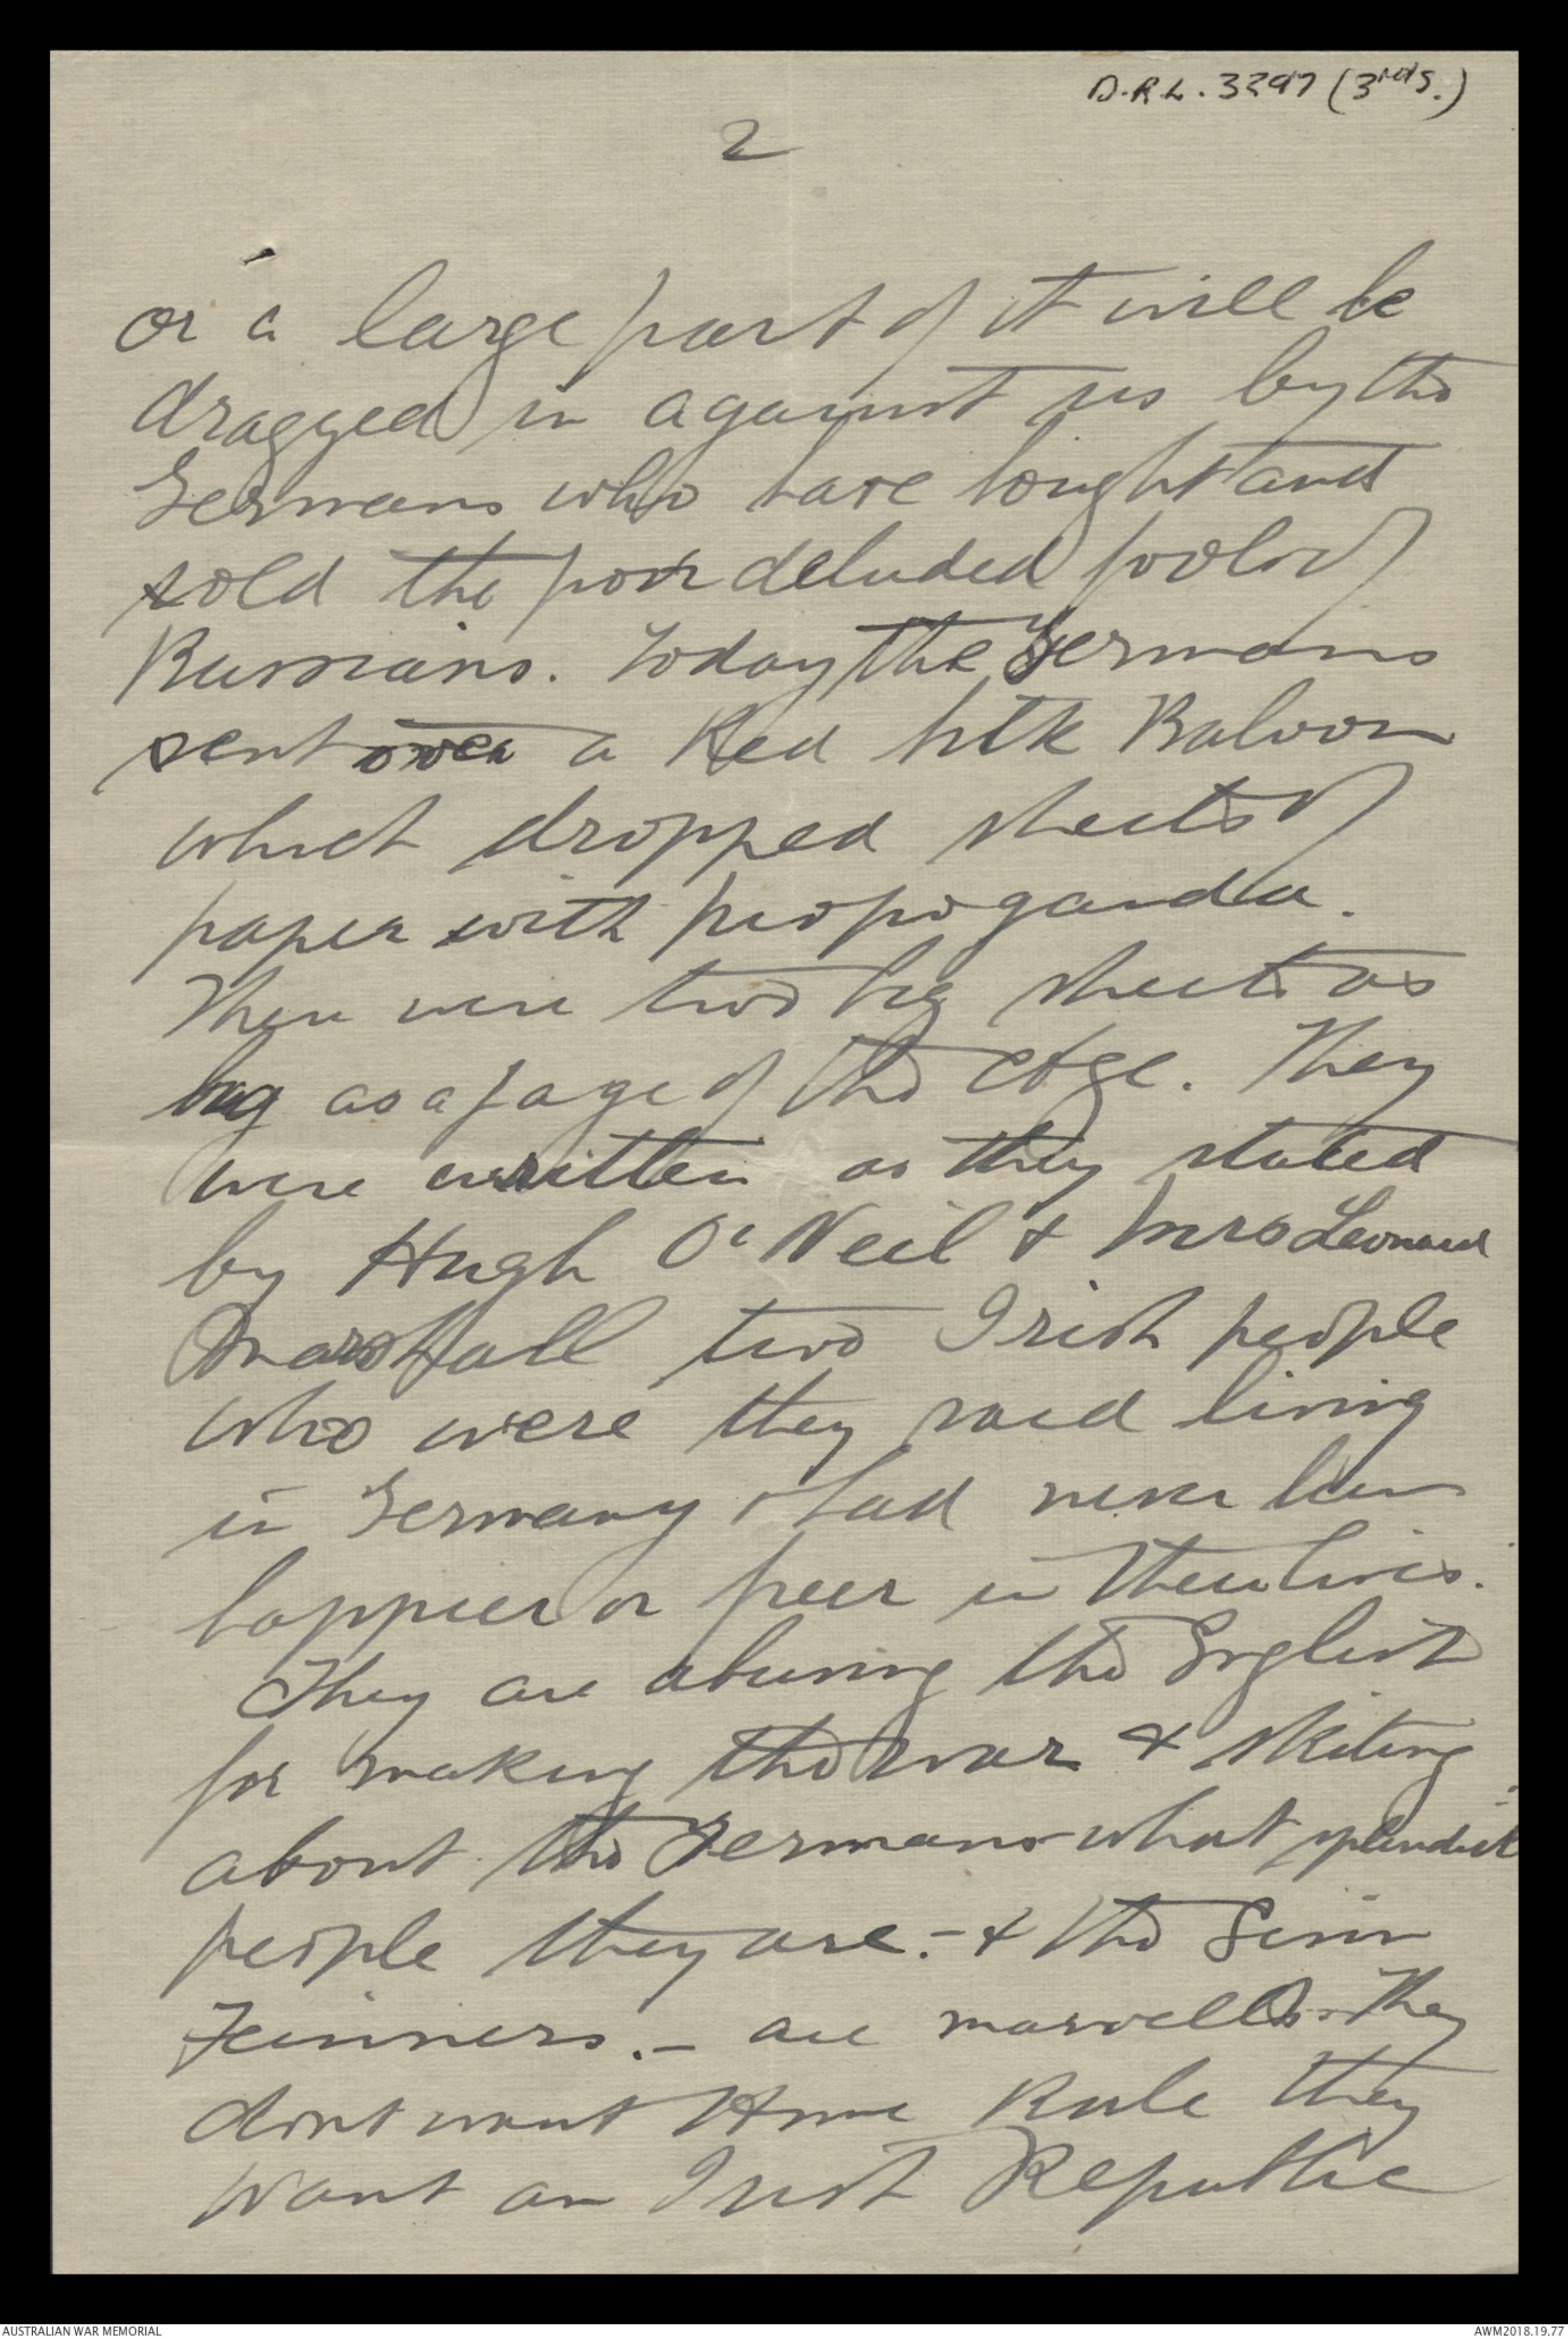 D.R.L. 3297 (3rds.)
2
or a large part of it will be
dragged in against us by the
Germans who have bought and
sold the poor deluded fools of
Russians. Today the Germans
sent over a Red silk Baloon
which dropped sheets of
paper with propoganda.
There were two big sheets as
big as a page of the Age. They
were written as they stated
by Hugh O'Neil & Mrs Leonard
Marshall two Irish people
who were they said living
in Germany & had never been
happier or freer in their lives.
They are abusing the English
for making the war & skiting
about the Germans what splendid
people they are:- & the Sinn
Feinners.- are marvells. They
dont want Home Rule they
want an Irish Republic
AUSTRALIAN WAR MEMORIAL
AWM2018.19.77